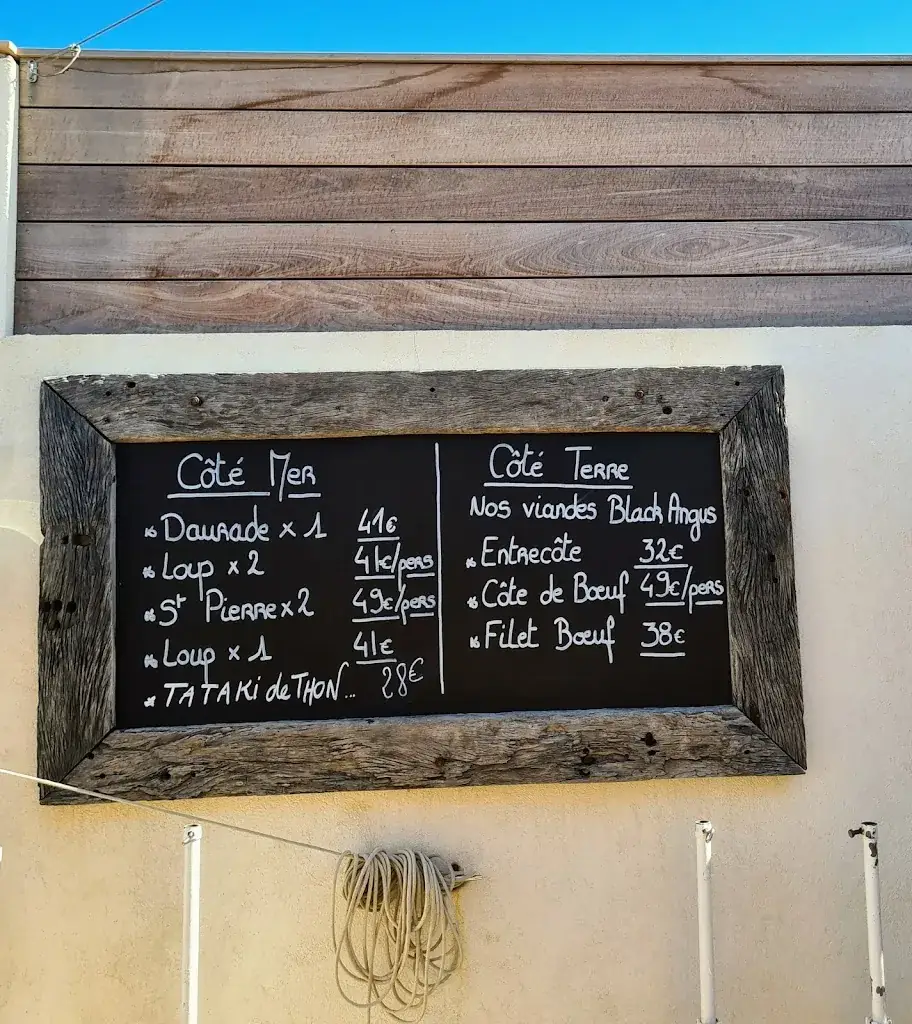 Côté Mer
* Daurade x 1 41€
* Loup x 2 41€/pers
* St Pierre x 2 49€/pers
* Loup x 1 41€
* TATAKi de THON... 28€
Côté Terre
Nos viandes Black Angus
* Entrecôte 32€
* Côte de Bœuf 49€/pers
* Filet Bœuf 38€